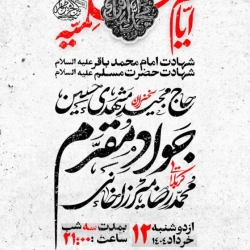 ایام مسلمیه
شهادت امام محمد باقر علیه السلام
شهادت حضرت مسلم علیه السلام
سخنران
حاج مجید مشهدی حسین
جواد مقدم
کربلایی
محمدرضا میرزاخانی
از دوشنبه ۱۲ خرداد ۱۴۰۴
بمدت سه شب
ساعت: ۲۱:۰۰